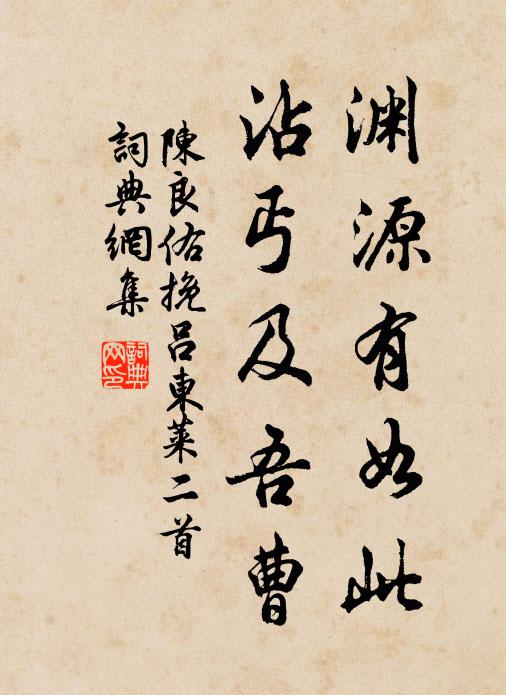 渊源有如此
沾丐及吾曹
陳良佑挽呂東萊二首
詞典網集
詞典
网印